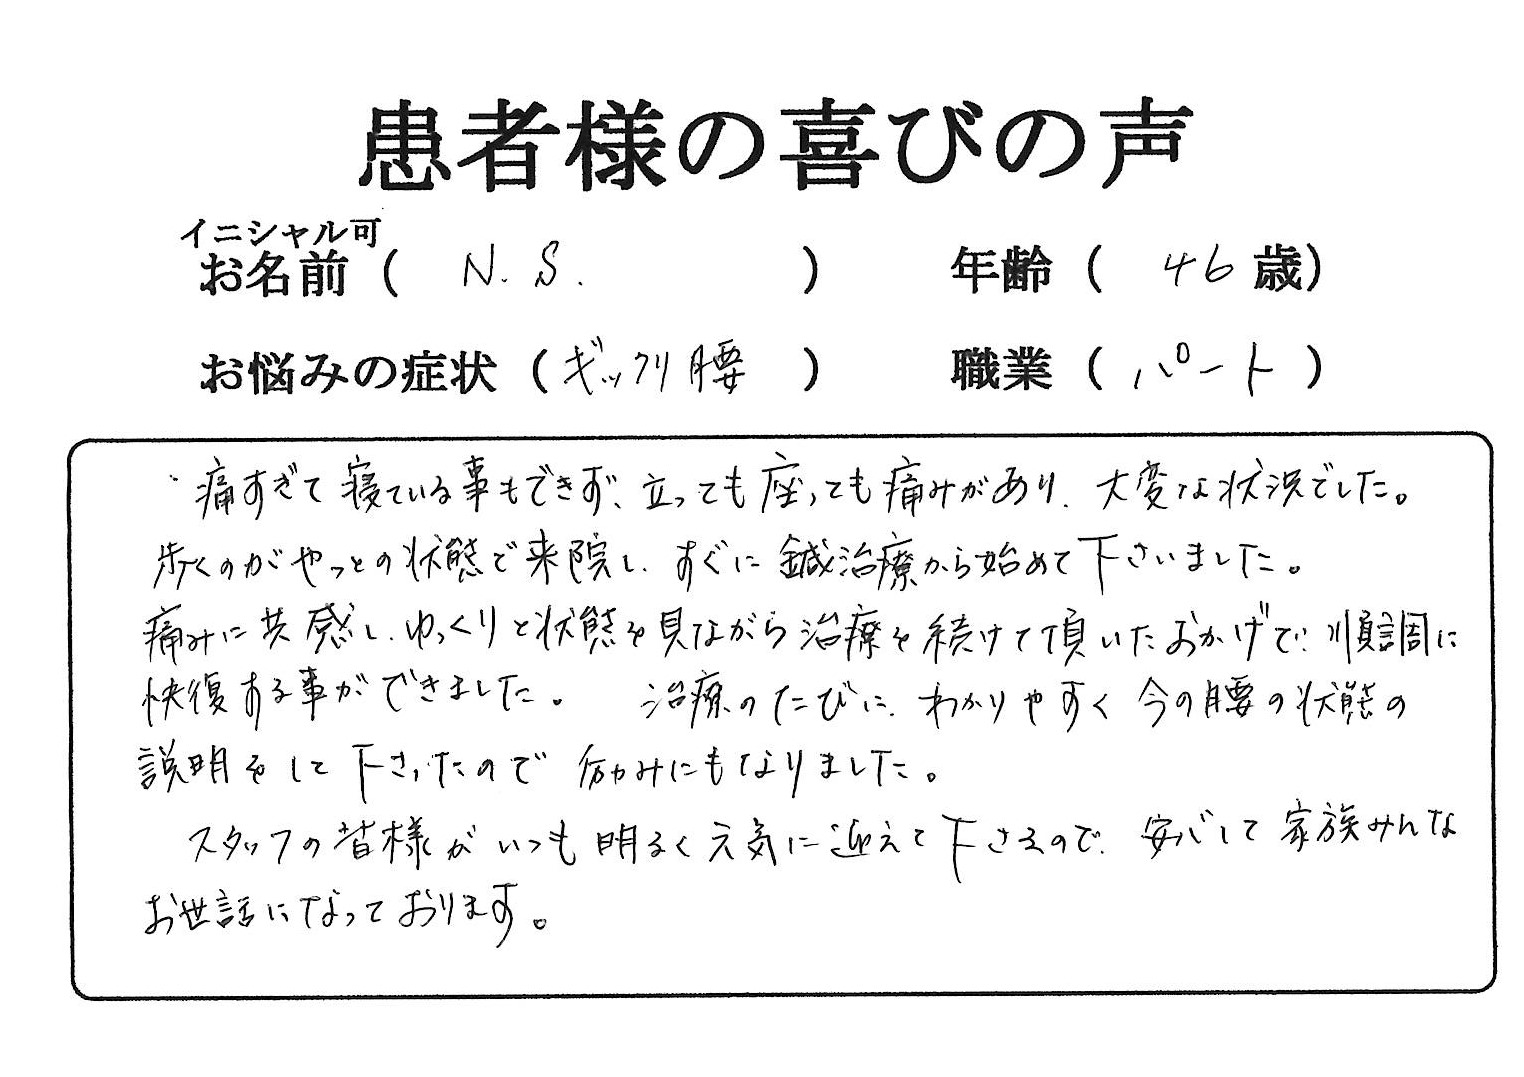 患者様の喜びの声
イニシャル可
お名前（ N. S. ） 年齢（ 46 歳）
お悩みの症状（ギックリ腰 ） 職業（ パート ）
痛すぎて寝ている事もできず、立っても座っても痛みがあり、大変な状況でした。
歩くのがやっとの状態で来院し、すぐに鍼治療から始めて下さいました。
痛みに共感し、ゆっくりと状態を見ながら治療を続けて頂いたおかげで、順調に
快復する事ができました。 治療のたびに、わかりやすく今の腰の状態の
説明をして下さったので励みにもなりました。
スタッフの皆様がいつも明るく元気に迎えて下さるので、安心して家族みんな
お世話になっております。